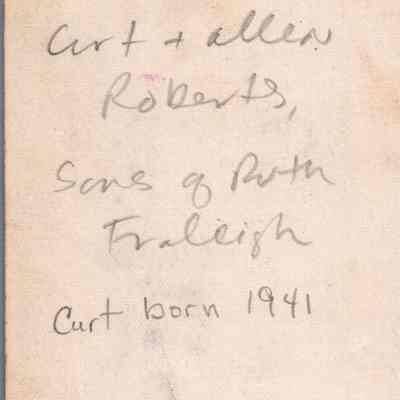 Curt + allen
Roberts,
Sons of Ruth
Fraleigh
Curt born 1941